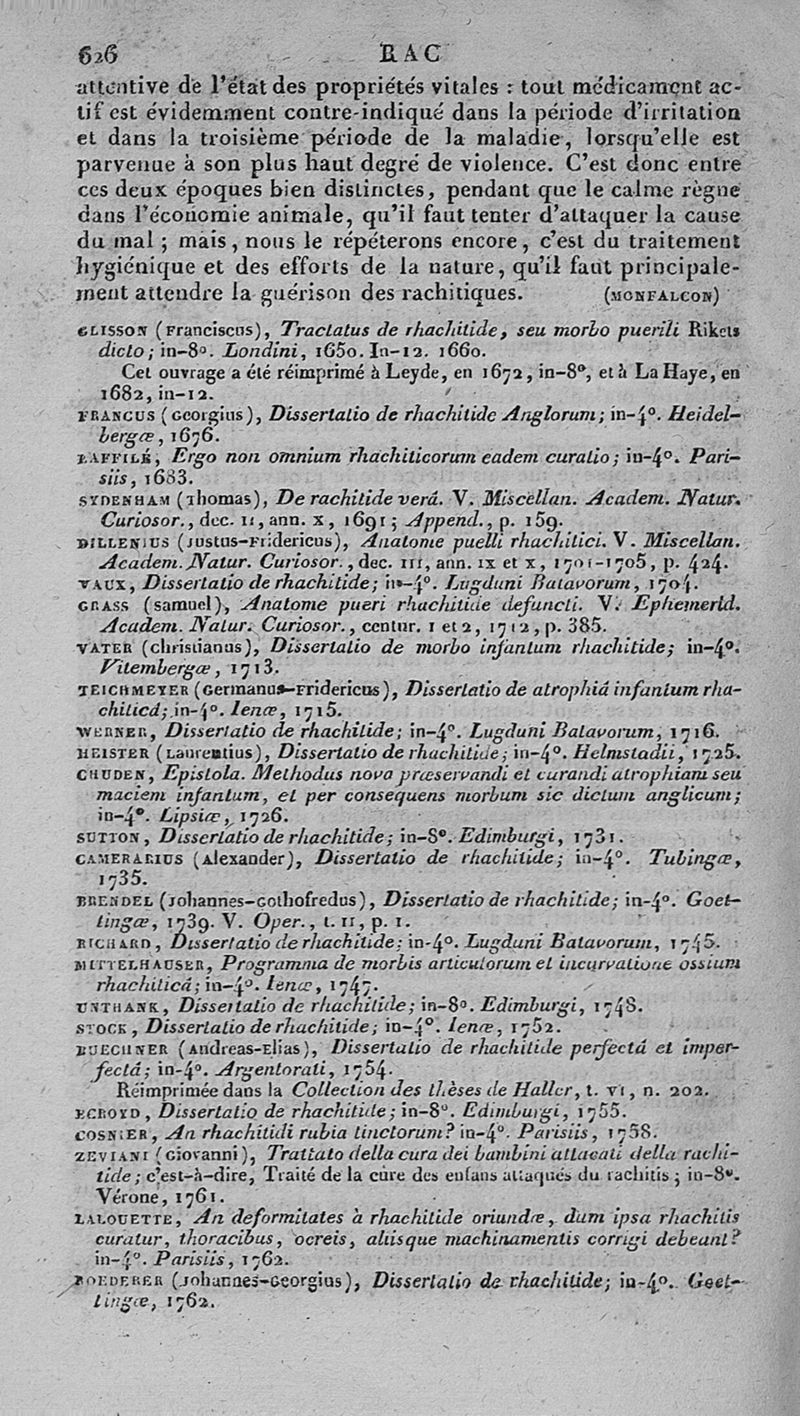 626 RAC
attentive de l'état des propriétés vitales : tout médicament ac-
tif est évidemment contre-indiqué dans la période d'irritation
et dans la troisième période de la maladie, lorsqu'elle est
parvenue à son plus haut degré de violence. C'est donc entre
ces deux époques bien distinctes, pendant que le calme règne
dans l'économie animale, qu'il faut tenter d'attaquer la cause
du mal ; mais, nous le répéterons encore, c'est du traitement
hygiénique et des efforts de la nature, qu'il faut principale-
ment attendre la guérison des rachitiques. (MONFALCON)
GLISSON (Franciscus), Tractatus de rhachitide, seu morbo puerili Rikets
dicto ; in-8°. Londini, 1650. In-12. 1660.
Cet ouvrage a été réimprimé à Leyde, en 1672, in-8°, et à La Haye, en
1682, in-12.
FRANCUS (Georgius), Dissertatio de rhachitide Anglorum ; in-4°. Heidel-
bergæ, 1676.
LAFFILÉ, Ergo non omnium rhachiticorum eadem curatio ; in-4°. Pari-
siis, 1683.
SYDENHAM (Thomas), De rachitide verâ. V. Miscellan. Academ. Natur.
Curiosor., dec. II, ann. X, 1691 ; Append., p. 159.
DILLENIUS (Justus-Fridericus), Anatome puelli rhachitici. V. Miscellan.
Academ. Natur. Curiosor., dec. III, ann. IX et X, 1701-1705, p. 424.
VAUX, Dissertatio de rhachitide ; in-4°. Lugduni Batavorum, 1704.
GRASS (Samuel), Anatome pueri rhachitide defuncti. V. Ephemerid.
Academ. Natur. Curiosor., centur. 1 et 2, 1712, p. 385.
VATER (Christianus), Dissertatio de morbo infantum rhachitide ; in-4°.
Vitembergæ, 1713.
TEICHMEYER (Germanus-Fridericus), Dissertatio de atrophiâ infantum rha-
chiticâ ; in-4°. Ienæ, 1715.
WERNER, Dissertatio de rhachitide ; in-4°. Lugduni Batavorum, 1716.
HEISTER (Laurentius), Dissertatio de rhachitide ; in-4°. Helmstadii, 1725.
CHUDEN, Epistola. Methodus nova præservandi et curandi atrophiam seu
maciem infantum, et per consequens morbum sic dictum anglicum ;
in-4°. Lipsiæ, 1726.
SUTTON, Dissertatio de rhachitide ; in-8°. Edimburgi, 1731.
CAMERARIUS (Alexander), Dissertatio de rhachitide ; in-4°. Tubingæ,
1735.
BRENDEL (Johannes-Gothofredus), Dissertatio de rhachitide ; in-4°. Goet-
tingæ, 1739. V. Oper., t. II, p. 1.
RICHARD, Dissertatio de rhachitide ; in-4°. Lugduni Batavorum, 1745.
MITTELHAUSER, Programma de morbis articulorum et incurvatione ossium
rhachiticâ ; in-4°. Ienæ, 1747.
UNTHANK, Dissertatio de rhachitide ; in-8°. Edimburgi, 1748.
STOCK, Dissertatio de rhachitide ; in-4°. Ienæ, 1752.
BUECHNER (Andreas-Elias), Dissertatio de rhachitide perfectâ et imper-
fectâ ; in-4°. Argentorati, 1754.
Réimprimée dans la Collection des thèses de Haller, t. VI, n. 202.
ECROYD, Dissertatio de rhachitide ; in-8°. Edimburgi, 1755.
COSNIER, An rhachitidi rubia tinctorum ? in-4°. Parisiis, 1758.
ZEVIANI (Giovanni), Trattato della cura dei bambini attacati della rachi-
tide ; c'est-à-dire, Traité de la cure des enfans attaqués du rachitis ; in-8°.
Vérone, 1761.
LALOUETTE, An deformitates à rhachitide oriundæ, dum ipsa rhachitis
curatur, thoracibus, ocreis, aliisque machinamentis corrigi debeant ?
in-4°. Parisiis, 1762.
ROEDERER (Johannes-Georgius), Dissertatio de rhachitide ; in-4°. Goet-
tingæ, 1762.